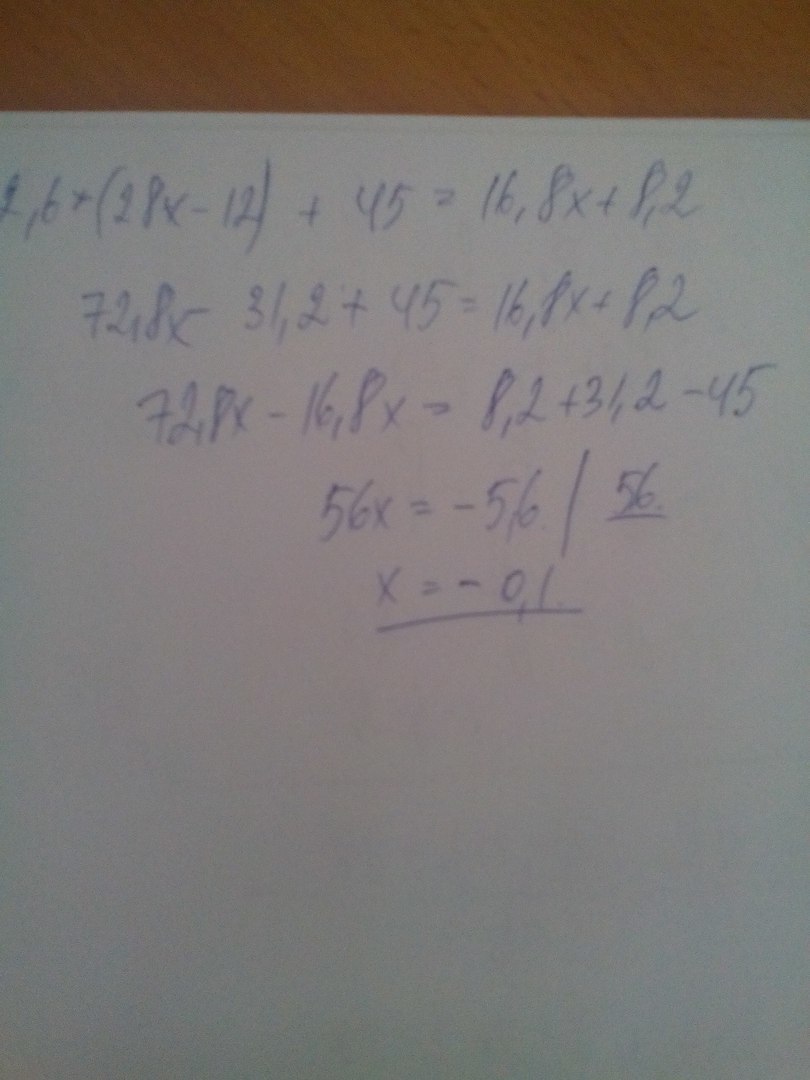 2,6*(28x-12) + 45 = 16,8x+8,2
72,8x - 31,2 + 45 = 16,8x+8,2
72,8x - 16,8x = 8,2+31,2-45
56x = -5,6 | 56
x = - 0,1